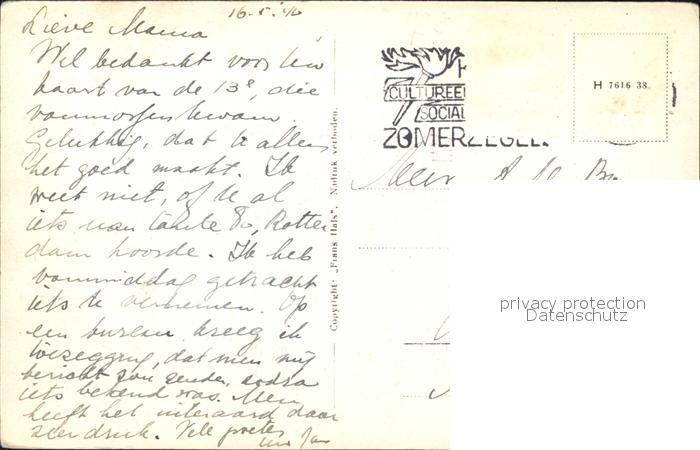 16-5-'40
Lieve Mama
Wel bedankt voor Uw
kaart van de 13e, die
vanmorgen kwam.
Gelukkig, dat U alles
het goed maakt. Ik
weet niet, of U al
iets van tante Do, Rotter
dam hoorde. Ik heb
vanmiddag getracht
iets te vernemen. Op
een bureau kreeg ik
toezegging, dat men mij
bericht zou zenden, zodra
iets bekend was. Men
heeft het uiteraard daar
zeer druk. Vele groeten
uw Jan
Copyright: „Frans Hals". Nadruk verboden.
CULTUREE
SOCIAL
ZOMERZEGEL
H 7616 38
privacy protection
Datenschutz